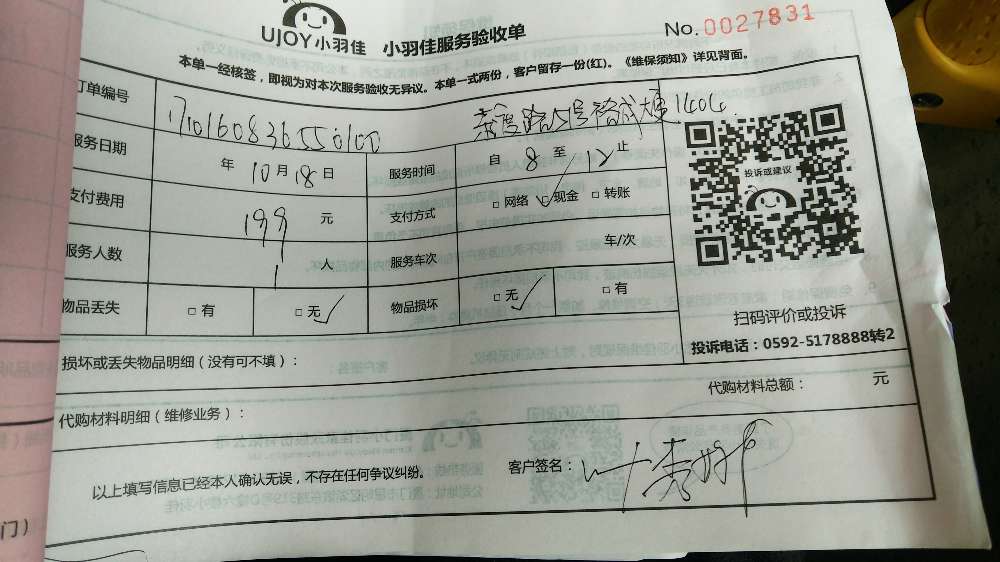 UJOY小羽佳 小羽佳服务验收单
No. 0027831
本单一经核签，即视为对本次服务验收无异议。本单一式两份，客户留存一份(红)。《维保须知》详见背面。
订单编号
服务日期 年 10月18日 服务时间 自 8 至 12 止
支付费用 199 元 支付方式 □ 网络 □ 现金 □ 转账
服务人数 1 人 服务车次 车/次
物品丢失 □ 有 □ 无 物品损坏 □ 无 □ 有
投诉或建议
扫码评价或投诉
投诉电话：0592-5178888转2
损坏或丢失物品明细（没有可不填）：
代购材料明细（维修业务）： 代购材料总额： 元
以上填写信息已经本人确认无误，不存在任何争议纠纷。 客户签名：
门）